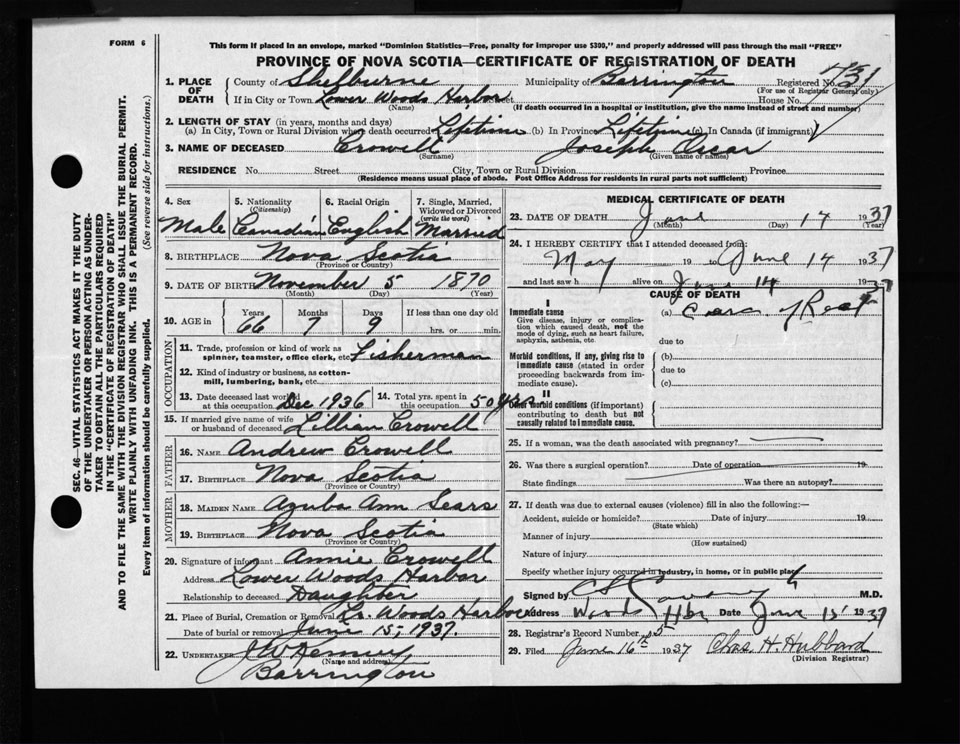 FORM 6
This form if placed in an envelope, marked "Dominion Statistics—Free, penalty for improper use $300," and properly addressed will pass through the mail "FREE"
PROVINCE OF NOVA SCOTIA—CERTIFICATE OF REGISTRATION OF DEATH
1. PLACE OF DEATH County of Shelburne Municipality of Barrington Registered No.
(For use of Registrar General only)
If in City or Town Lower Woods Harbor Street House No.
(Name) (If death occurred in a hospital or institution, give the name instead of street and number)
2. LENGTH OF STAY (in years, months and days)
(a) In City, Town or Rural Division where death occurred Lifetime (b) In Province Lifetime (c) In Canada (if immigrant)
3. NAME OF DECEASED Crowell Joseph Oscar
(Surname) (Given name or names)
RESIDENCE No. Street City, Town or Rural Division Province
(Residence means usual place of abode. Post Office Address for residents in rural parts not sufficient)
4. Sex 5. Nationality (Citizenship) 6. Racial Origin 7. Single, Married, Widowed or Divorced (write the word)
Male Canadian English Married
8. BIRTHPLACE Nova Scotia
(Province or Country)
9. DATE OF BIRTH November 5 1870
(Month) (Day) (Year)
10. AGE in Years Months Days If less than one day old
66 7 9 hrs. or min.
OCCUPATION
11. Trade, profession or kind of work as spinner, teamster, office clerk, etc. Fisherman
12. Kind of industry or business, as cotton-mill, lumbering, bank, etc.
13. Date deceased last worked at this occupation Dec 1936 14. Total yrs. spent in this occupation 50 yrs
15. If married give name of wife or husband of deceased Lillian Crowell
FATHER
16. NAME Andrew Crowell
17. BIRTHPLACE Nova Scotia
(Province or Country)
MOTHER
18. MAIDEN NAME Azuba Ann Sears
19. BIRTHPLACE Nova Scotia
(Province or Country)
20. Signature of informant Annie Crowell
Address Lower Woods Harbor
Relationship to deceased Daughter
21. Place of Burial, Cremation or Removal Lr. Woods Harbor
Date of burial or removal June 15, 1937.
22. UNDERTAKER J W Kenney
(Name and address)
Barrington
MEDICAL CERTIFICATE OF DEATH
23. DATE OF DEATH June 14 1937
(Month) (Day) (Year)
24. I HEREBY CERTIFY that I attended deceased from:
May 19 to June 14 1937
and last saw h alive on June 14 1937
CAUSE OF DEATH
I
Immediate cause (a)
Give disease, injury or complication which caused death, not the mode of dying, such as heart failure, asphyxia, asthenia, etc.
due to
Morbid conditions, if any, giving rise to immediate cause (stated in order proceeding backwards from immediate cause).
(b)
due to
(c)
II
Other morbid conditions (if important) contributing to death but not causally related to immediate cause.
25. If a woman, was the death associated with pregnancy?
26. Was there a surgical operation? Date of operation 19
State findings Was there an autopsy?
27. If death was due to external causes (violence) fill in also the following:—
Accident, suicide or homicide? Date of injury 19
(State which)
Manner of injury
(How sustained)
Nature of injury
Specify whether injury occurred in industry, in home, or in public place
Signed by M.D.
Address Woods Hbr Date June 15 1937
28. Registrar's Record Number
29. Filed June 16th 1937 Chas. H. Hubbard
(Division Registrar)
SEC. 46—VITAL STATISTICS ACT MAKES IT THE DUTY
OF THE UNDERTAKER OR PERSON ACTING AS UNDER-
TAKER TO OBTAIN ALL THE PARTICULARS REQUIRED
IN THE "CERTIFICATE OF REGISTRATION OF DEATH"
AND TO FILE THE SAME WITH THE DIVISION REGISTRAR WHO SHALL ISSUE THE BURIAL PERMIT.
WRITE PLAINLY WITH UNFADING INK. THIS IS A PERMANENT RECORD.
Every item of information should be carefully supplied. (See reverse side for instructions.)